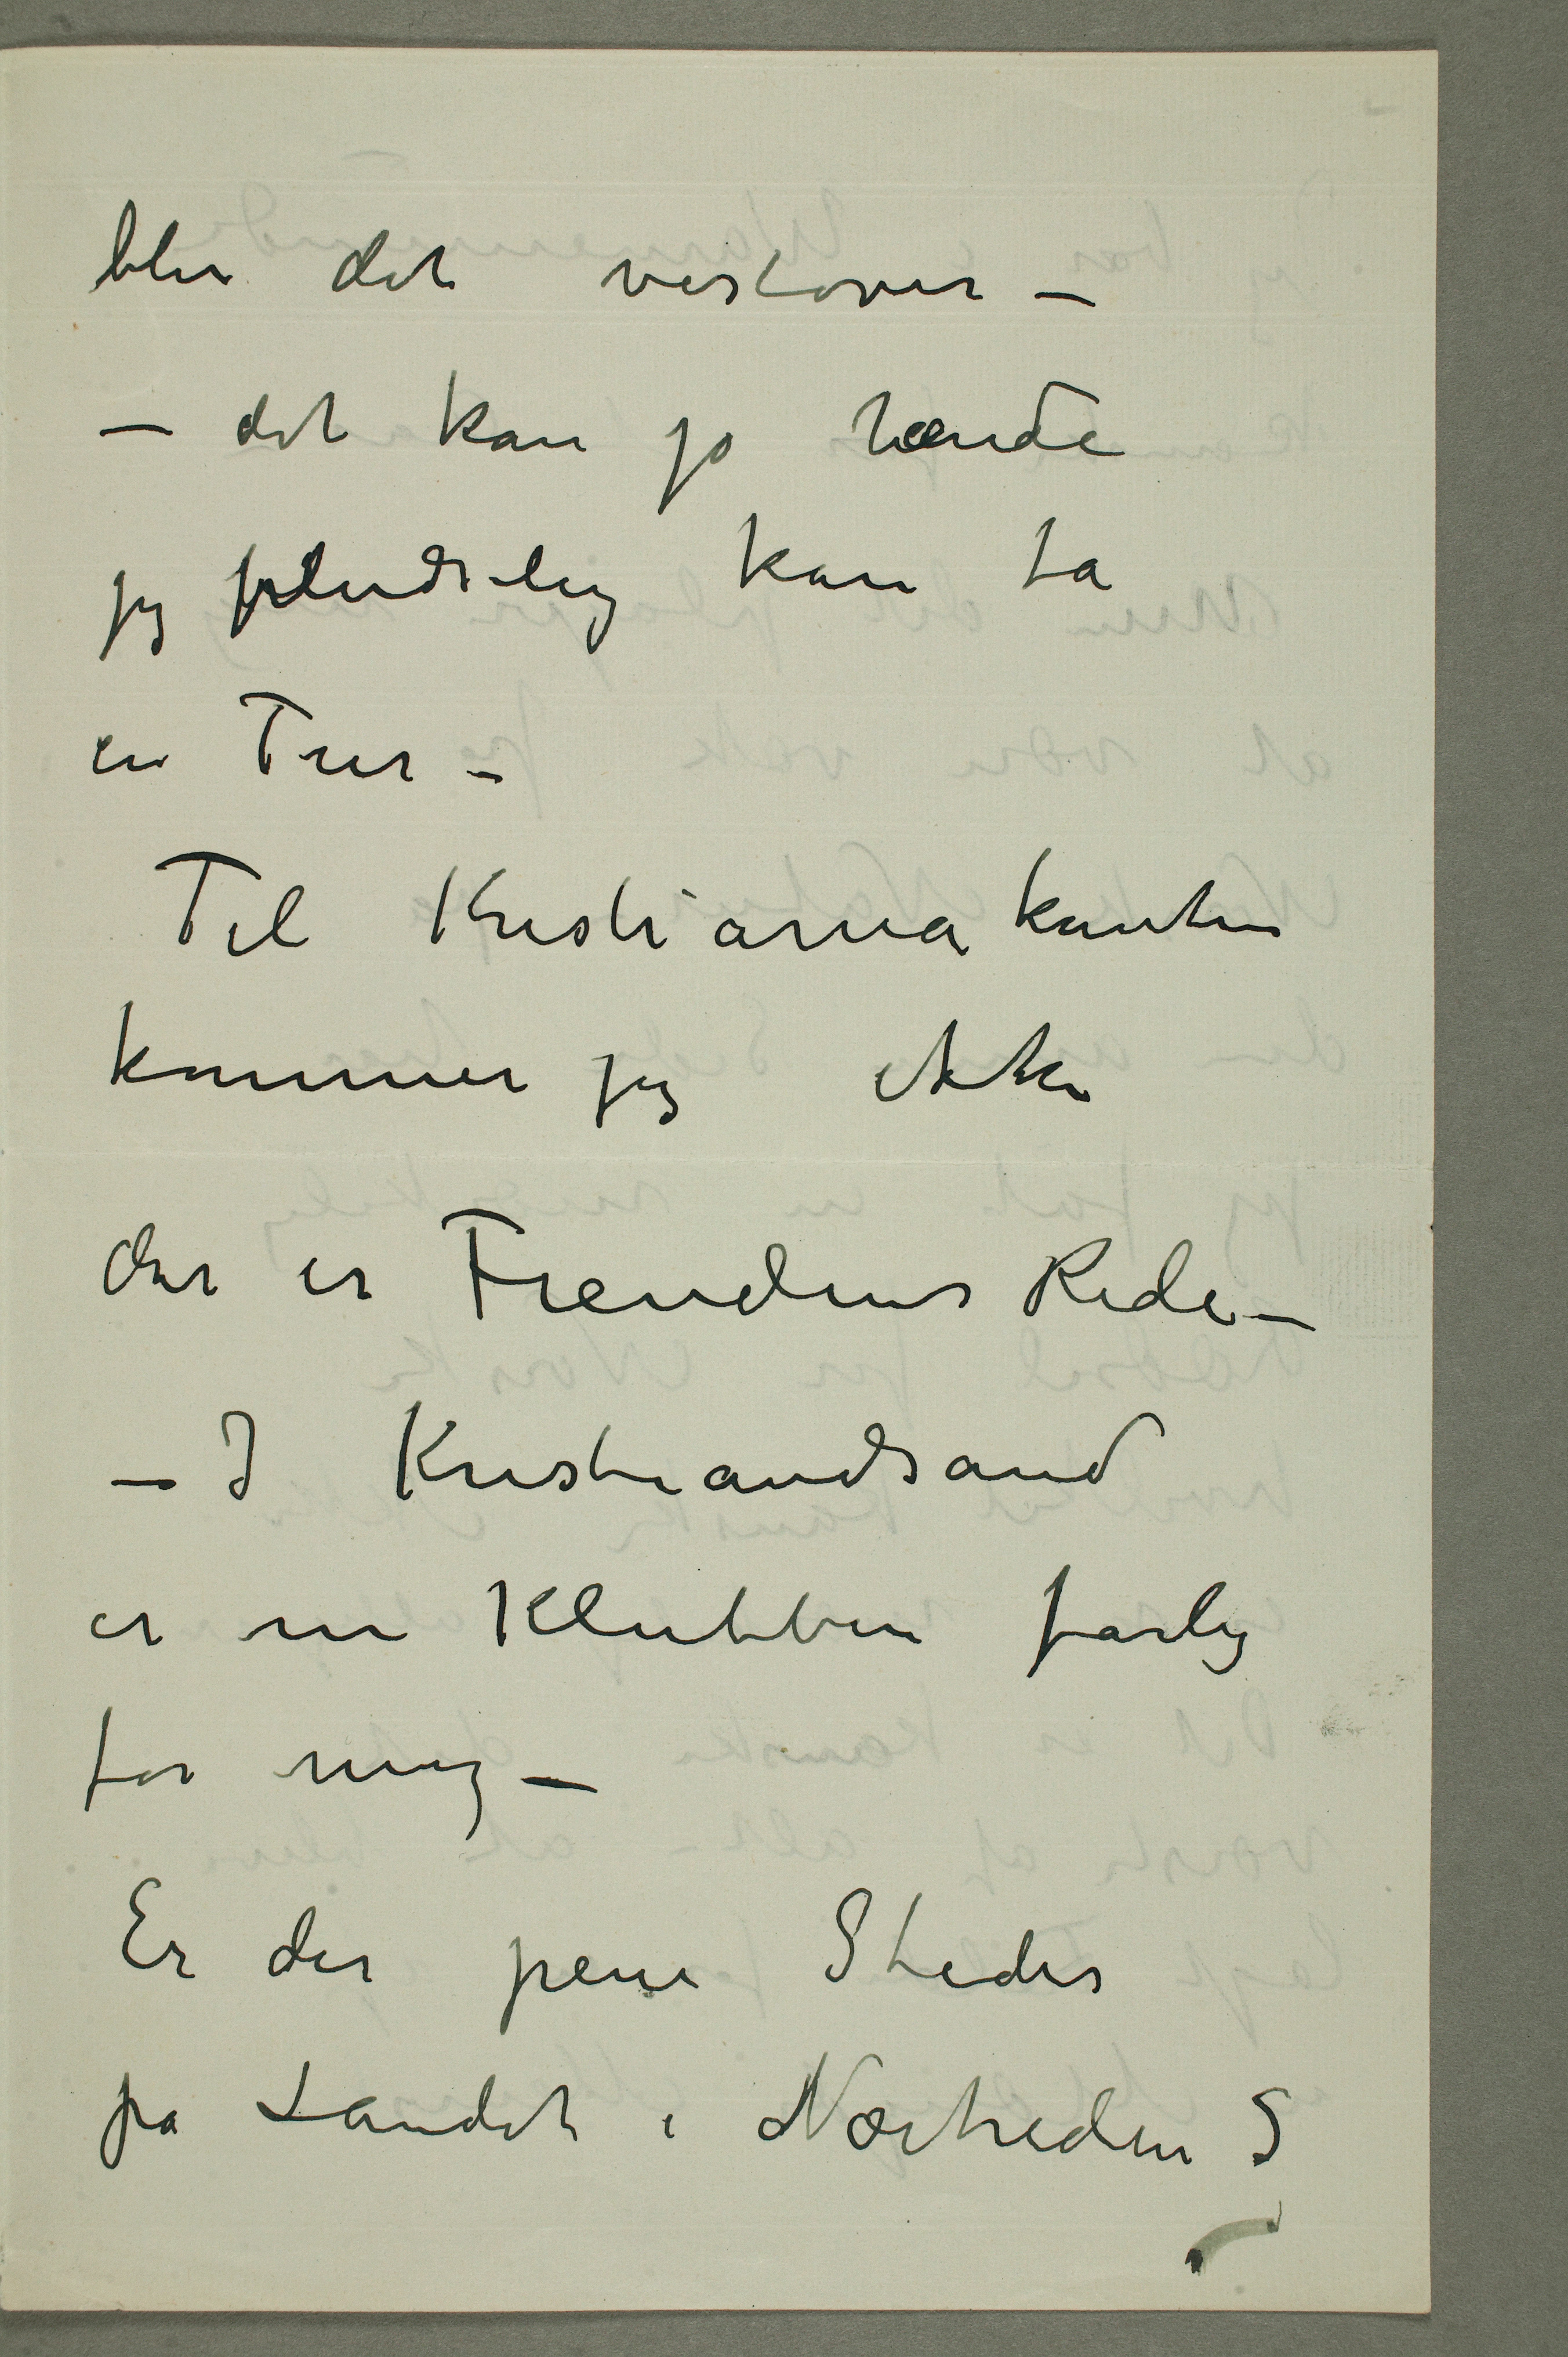 blir det vestover –
– det kan jo hænde
jeg pludselig kan ta
en Tur –
Til Kristianiakanten
kommer jeg ikke
der er Fiendens Rede –
– I Kristiandsand
er nu Klubben farlig
for mig –
Er der pene Steder
på Landet i Nærheden ?